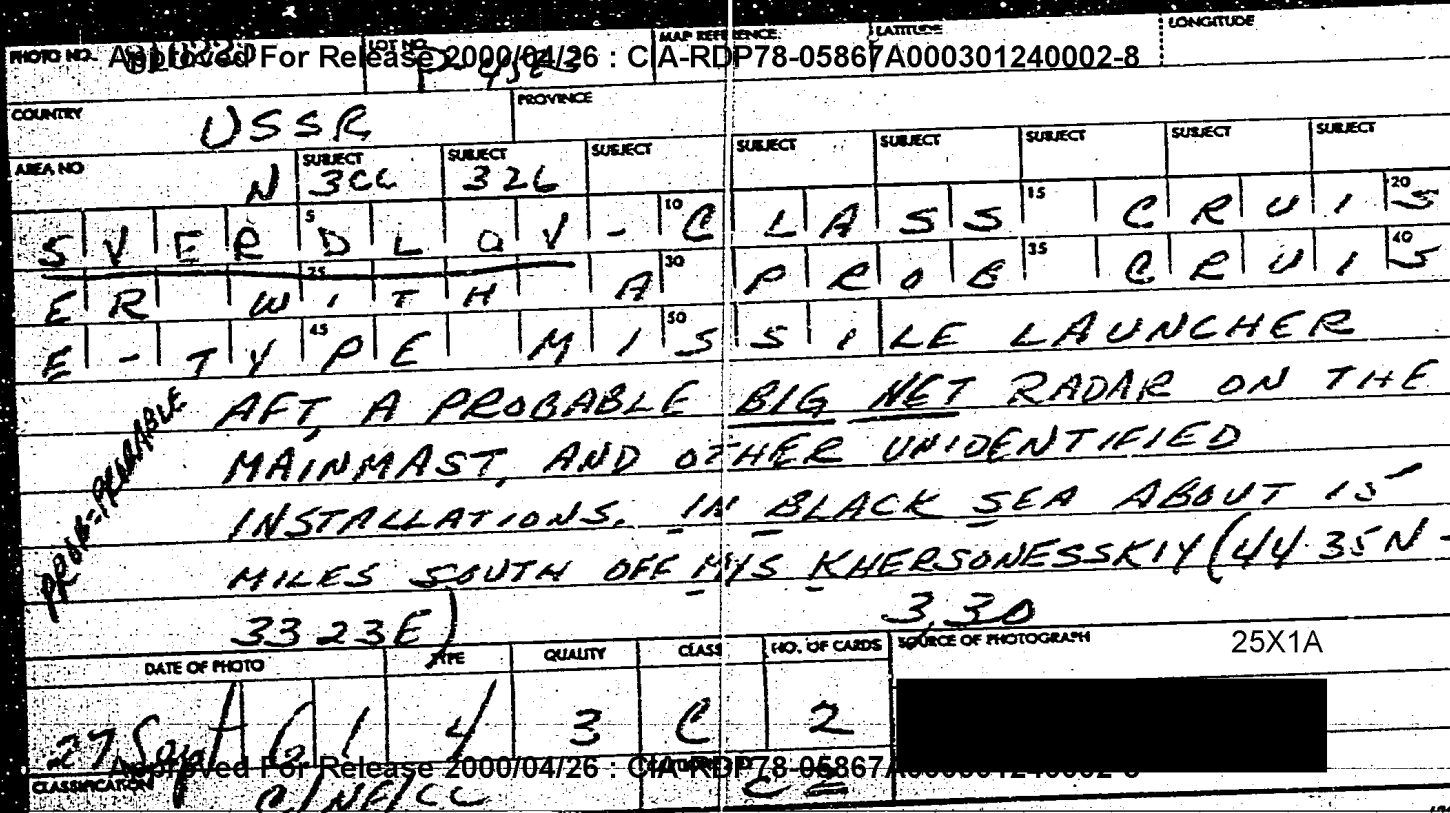 PHOTO NO. LOT NO. MAP REFERENCE LATITUDE LONGITUDE
Approved For Release 2000/04/26 : CIA-RDP78-05867A000301240002-8
COUNTRY USSR PROVINCE
AREA NO N SUBJECT 3CC SUBJECT 326 SUBJECT SUBJECT SUBJECT SUBJECT SUBJECT SUBJECT
5 10 15 20
SVERDLOV-CLASS CRUIS
25 30 35 40
ER WITH A PROB CRUIS
45 50
E-TYPE MISSILE LAUNCHER
AFT, A PROBABLE BIG NET RADAR ON THE
MAINMAST, AND OTHER UNIDENTIFIED
INSTALLATIONS. IN BLACK SEA ABOUT 15
MILES SOUTH OFF MYS KHERSONESSKIY (44 35N -
33 23E) 3,30
PROB=PROBABLE
DATE OF PHOTO TYPE QUALITY CLASS NO. OF CARDS SOURCE OF PHOTOGRAPH 25X1A
27 Sept 61 4 3 C 2
Approved For Release 2000/04/26 : CIA-RDP78-05867A000301240002-8
CLASSIFICATION C/NF/CC